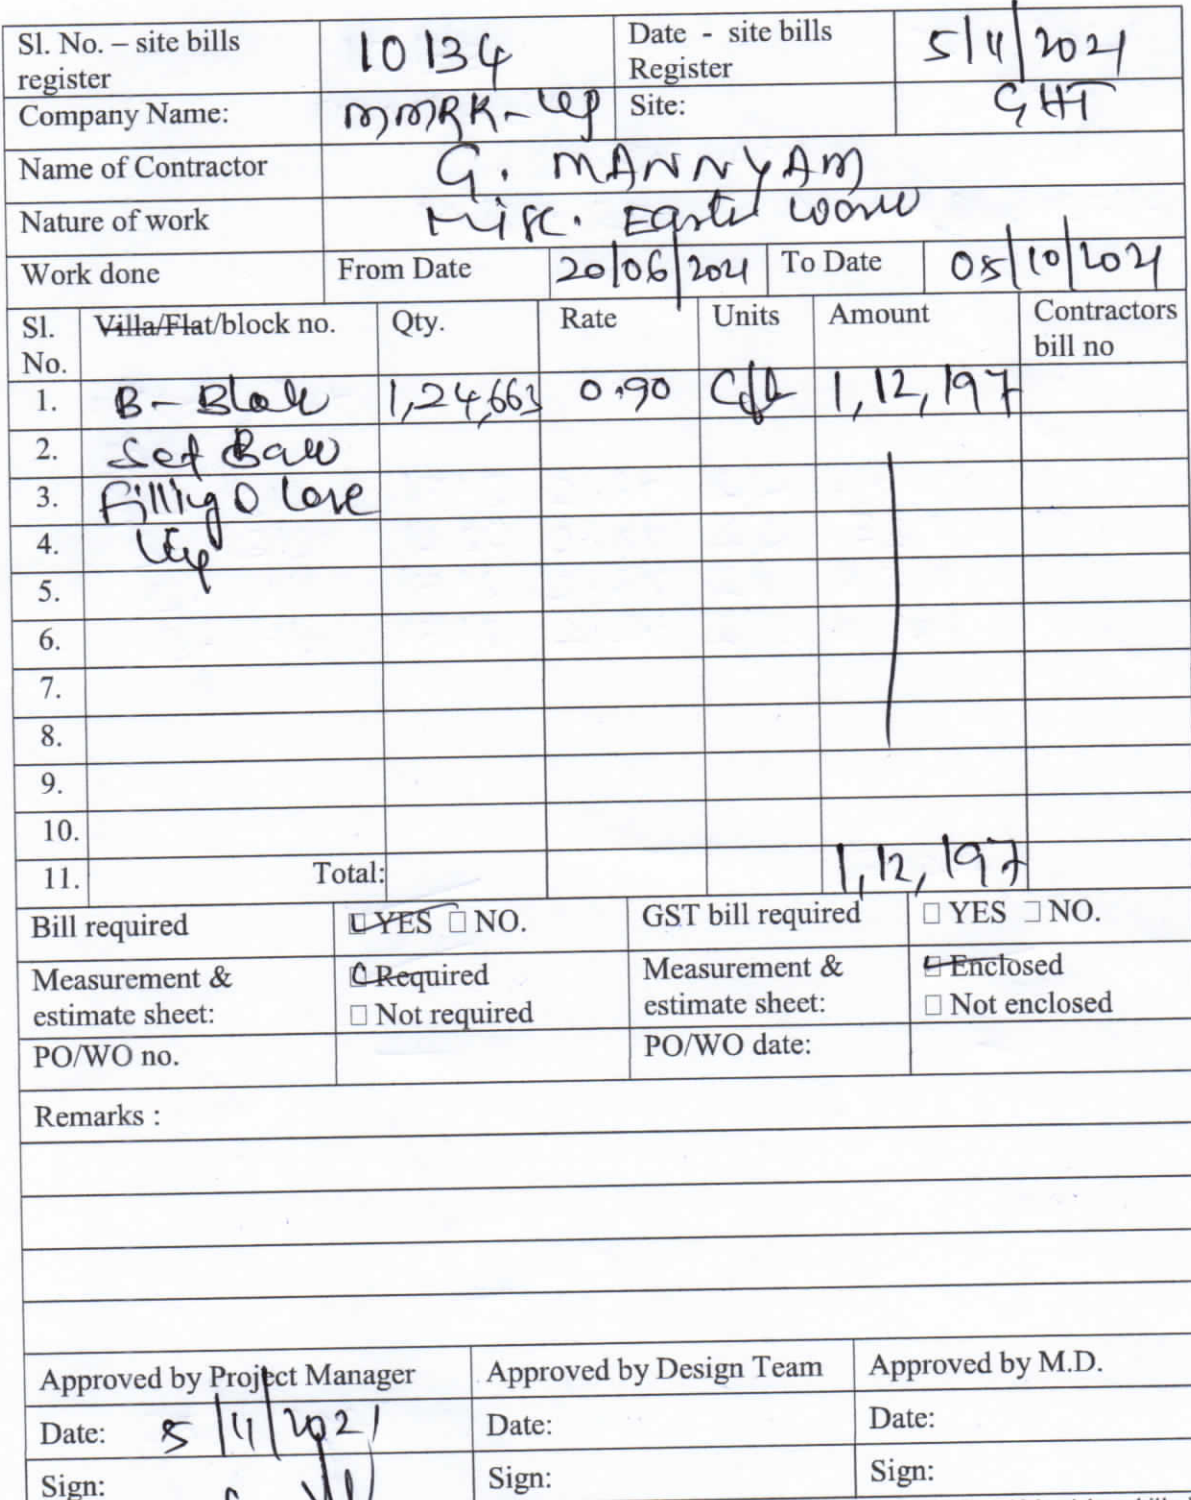 Sl. No. – site bills register 10134 Date - site bills Register 5/11/2021
Company Name: MMRK- Site: GHT
Name of Contractor G. MANNYAM
Nature of work Misc. Earth work
Work done From Date 20/06/2021 To Date 05/10/2021
Sl. No. Villa/Flat/block no. Qty. Rate Units Amount Contractors bill no
1. B-Block 1,24,663 0.90 Cft 1,12,197
2. Set Back
3. Filling
4.
5.
6.
7.
8.
9.
10.
11. Total: 1,12,197
Bill required □ YES □ NO. GST bill required □ YES □ NO.
Measurement & estimate sheet: □ Required □ Not required Measurement & estimate sheet: □ Enclosed □ Not enclosed
PO/WO no. PO/WO date:
Remarks :
Approved by Project Manager Approved by Design Team Approved by M.D.
Date: 5/11/2021 Date: Date:
Sign: Sign: Sign: